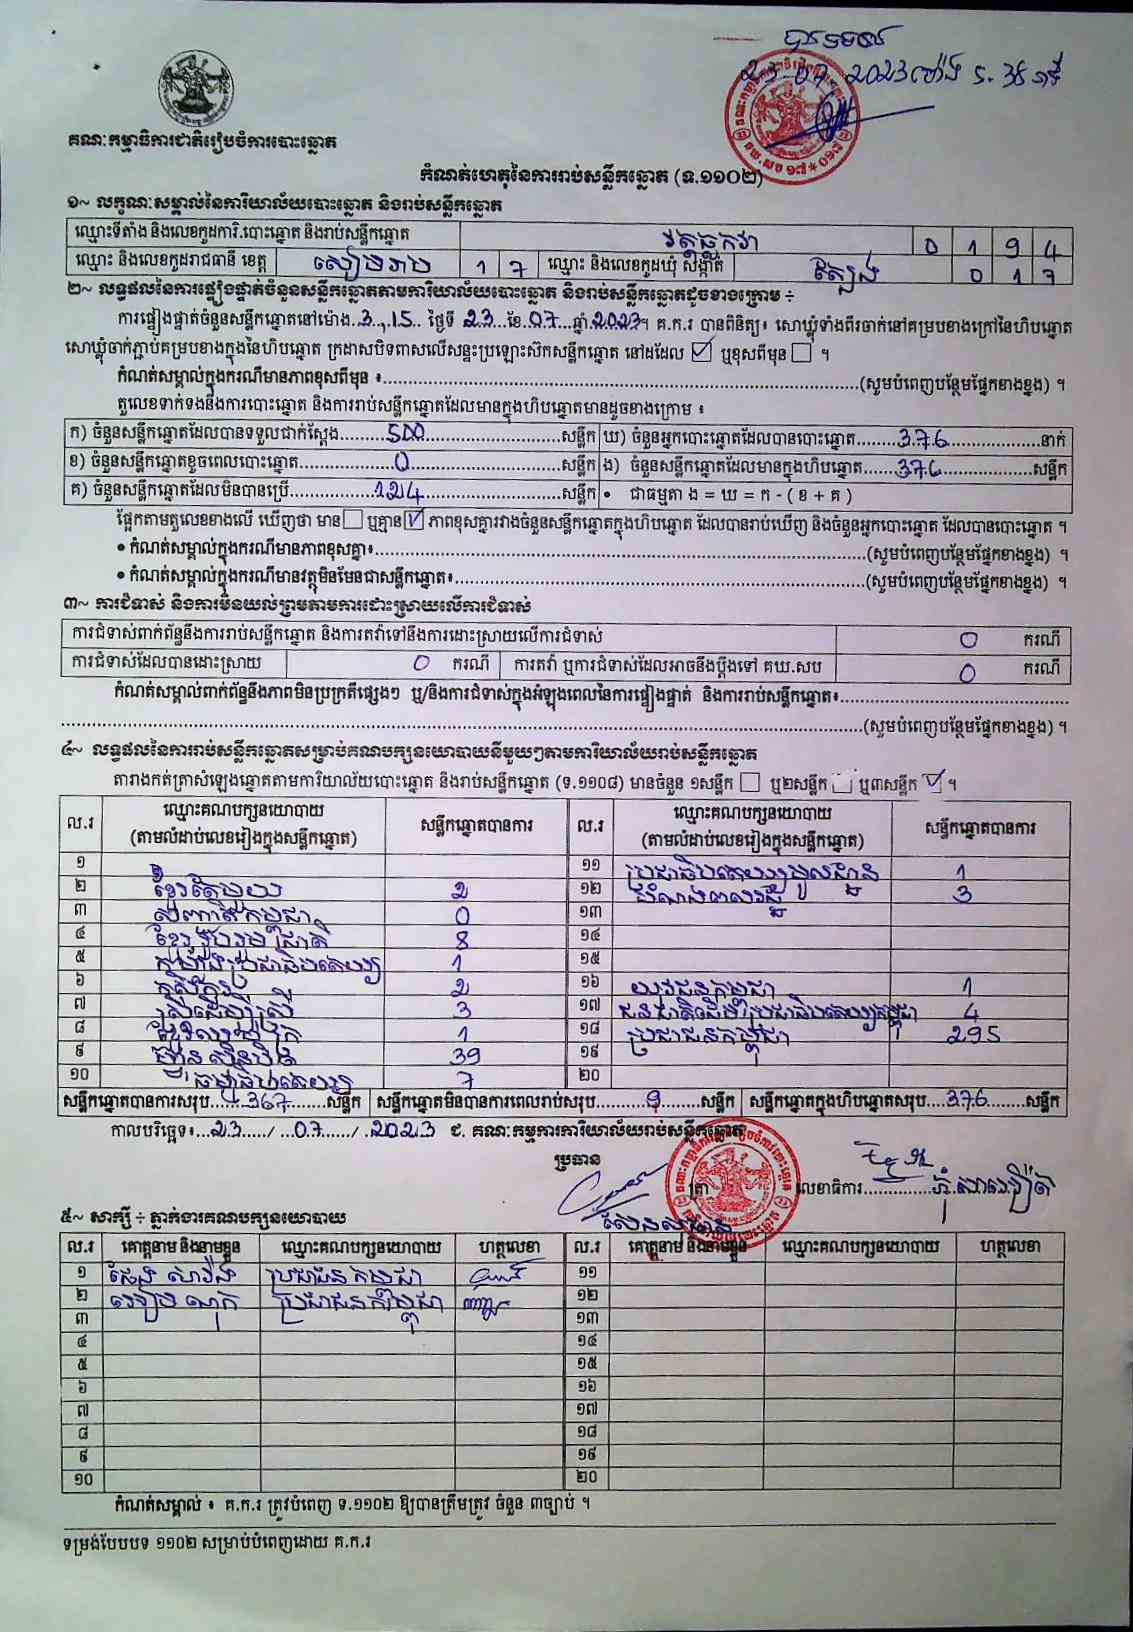 ២៣-07 2023 ម៉ោង ៩.35 នាទី
គណៈកម្មាធិការជាតិរៀបចំការបោះឆ្នោត
កំណត់ហេតុនៃការរាប់សន្លឹកឆ្នោត (ទ.១១០២)
១~ លក្ខណៈសម្គាល់នៃការិយាល័យបោះឆ្នោត និងរាប់សន្លឹកឆ្នោត
ឈ្មោះទីតាំង និងលេខកូដការិ.បោះឆ្នោត និងរាប់សន្លឹកឆ្នោត វត្តធ្លកវា 0 1 9 4
ឈ្មោះ និងលេខកូដរាជធានី ខេត្ត សៀមរាប 1 7 ឈ្មោះ និងលេខកូដឃុំ សង្កាត់ ត្បែង 0 1 7
២~ លទ្ធផលនៃការផ្ទៀងផ្ទាត់ចំនួនសន្លឹកឆ្នោតតាមការិយាល័យបោះឆ្នោត និងរាប់សន្លឹកឆ្នោតដូចខាងក្រោម ÷
ការផ្ទៀងផ្ទាត់ចំនួនសន្លឹកឆ្នោតនៅម៉ោង 3:15 ថ្ងៃទី 23 ខែ 07 ឆ្នាំ 2023។ គ.ក.រ បានពិនិត្យ៖ សោឃ្លុំទាំងពីរចាក់នៅគម្របខាងក្រៅនៃហិបឆ្នោត
សោឃ្លុំចាក់ភ្ជាប់គម្របខាងក្នុងនៃហិបឆ្នោត ក្រដាសបិទពាសលើសន្ទះប្រឡោះស៊កសន្លឹកឆ្នោត នៅដដែល ☑ ឬខុសពីមុន ☐ ។
កំណត់សម្គាល់ក្នុងករណីមានភាពខុសពីមុន ៖..........(សូមបំពេញបន្ថែមផ្នែកខាងខ្នង) ។
តួលេខទាក់ទងនឹងការបោះឆ្នោត និងការរាប់សន្លឹកឆ្នោតដែលមានក្នុងហិបឆ្នោតមានដូចខាងក្រោម ៖
ក) ចំនួនសន្លឹកឆ្នោតដែលបានទទួលជាក់ស្តែង.....500.....សន្លឹក ឃ) ចំនួនអ្នកបោះឆ្នោតដែលបានបោះឆ្នោត.....376.....នាក់
ខ) ចំនួនសន្លឹកឆ្នោតខូចពេលបោះឆ្នោត.....0.....សន្លឹក ង) ចំនួនសន្លឹកឆ្នោតដែលមានក្នុងហិបឆ្នោត.....376.....សន្លឹក
គ) ចំនួនសន្លឹកឆ្នោតដែលមិនបានប្រើ.....124.....សន្លឹក • ជាធម្មតា ង = ឃ = ក - ( ខ + គ )
ផ្អែកតាមតួលេខខាងលើ ឃើញថា មាន ☐ ឬគ្មាន ☑ ភាពខុសគ្នារវាងចំនួនសន្លឹកឆ្នោតក្នុងហិបឆ្នោត ដែលបានរាប់ឃើញ និងចំនួនអ្នកបោះឆ្នោត ដែលបានបោះឆ្នោត ។
• កំណត់សម្គាល់ក្នុងករណីមានភាពខុសគ្នា៖..........(សូមបំពេញបន្ថែមផ្នែកខាងខ្នង) ។
• កំណត់សម្គាល់ក្នុងករណីមានវត្ថុមិនមែនជាសន្លឹកឆ្នោត៖..........(សូមបំពេញបន្ថែមផ្នែកខាងខ្នង) ។
៣~ ការជំទាស់ និងការមិនយល់ព្រមតាមការដោះស្រាយលើការជំទាស់
ការជំទាស់ពាក់ព័ន្ធនឹងការរាប់សន្លឹកឆ្នោត និងការតវ៉ាទៅនឹងការដោះស្រាយលើការជំទាស់ 0 ករណី
ការជំទាស់ដែលបានដោះស្រាយ 0 ករណី ការតវ៉ា ឬការជំទាស់ដែលអាចនឹងប្តឹងទៅ គឃ.សប 0 ករណី
កំណត់សម្គាល់ពាក់ព័ន្ធនឹងភាពមិនប្រក្រតីផ្សេងៗ ឬ/និងការជំទាស់ក្នុងអំឡុងពេលនៃការផ្ទៀងផ្ទាត់ និងការរាប់សន្លឹកឆ្នោត៖..........
..........(សូមបំពេញបន្ថែមផ្នែកខាងខ្នង) ។
៤~ លទ្ធផលនៃការរាប់សន្លឹកឆ្នោតសម្រាប់គណបក្សនយោបាយនីមួយៗតាមការិយាល័យរាប់សន្លឹកឆ្នោត
តារាងកត់ត្រាសំឡេងឆ្នោតតាមការិយាល័យបោះឆ្នោត និងរាប់សន្លឹកឆ្នោត (ទ.១១០៨) មានចំនួន ១សន្លឹក ☐ ឬ២សន្លឹក ☐ ឬ៣សន្លឹក ☑ ។
ល.រ ឈ្មោះគណបក្សនយោបាយ (តាមលំដាប់លេខរៀងក្នុងសន្លឹកឆ្នោត) សន្លឹកឆ្នោតបានការ ល.រ ឈ្មោះគណបក្សនយោបាយ (តាមលំដាប់លេខរៀងក្នុងសន្លឹកឆ្នោត) សន្លឹកឆ្នោតបានការ
១ ១១ ប្រជាធិបតេយ្យមូលដ្ឋាន 1
២ ខ្មែរតែមួយ 2 ១២ ដំណាងរាស្ត្រ 3
៣ សញ្ជាតិកម្ពុជា 0 ១៣
៤ ខ្មែររួបរួមជាតិ 8 ១៤
៥ កម្លាំងប្រជាធិបតេយ្យ 1 ១៥
៦ កសិករ 2 ១៦ យុវជនកម្ពុជា 1
៧ ស្ត្រីដើម្បីស្ត្រី 3 ១៧ ជនជាតិដើមប្រជាធិបតេយ្យកម្ពុជា 4
៨ 1 ១៨ ប្រជាជនកម្ពុជា 295
៩ ហ៊្វុនស៊ិនប៉ិច 39 ១៩
១០ ធម្មាធិបតេយ្យ 7 ២០
សន្លឹកឆ្នោតបានការសរុប.....367.....សន្លឹក សន្លឹកឆ្នោតមិនបានការពេលរាប់សរុប.....9.....សន្លឹក សន្លឹកឆ្នោតក្នុងហិបឆ្នោតសរុប.....376.....សន្លឹក
កាលបរិច្ឆេទ៖ 23 / 07 / 2023 ជ. គណៈកម្មការការិយាល័យរាប់សន្លឹកឆ្នោត
ប្រធាន
ត្រា លេខាធិការ
៥~ សាក្សី ÷ ភ្នាក់ងារគណបក្សនយោបាយ
ល.រ គោត្តនាម និងនាមខ្លួន ឈ្មោះគណបក្សនយោបាយ ហត្ថលេខា ល.រ គោត្តនាម និងនាមខ្លួន ឈ្មោះគណបក្សនយោបាយ ហត្ថលេខា
១ ប្រជាជនកម្ពុជា ១១
២ ប្រជាជនកម្ពុជា ១២
៣ ១៣
៤ ១៤
៥ ១៥
៦ ១៦
៧ ១៧
៨ ១៨
៩ ១៩
១០ ២០
កំណត់សម្គាល់ ៖ គ.ក.រ ត្រូវបំពេញ ទ.១១០២ ឱ្យបានត្រឹមត្រូវ ចំនួន ៣ច្បាប់ ។
ទម្រង់បែបបទ ១១០២ សម្រាប់បំពេញដោយ គ.ក.រ